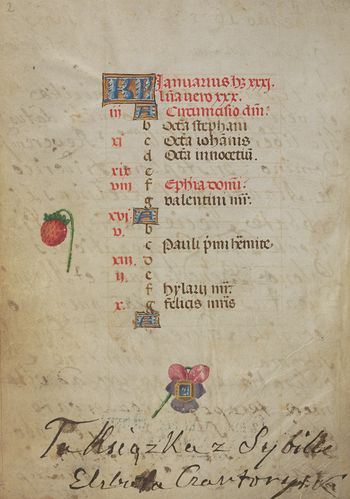 2
KL Januarius hʒ xxxi.
luna vero xxx.
iii A Circumcisio dñi.
b Octa stephani
xi c Octa iohanis
d Octa innocetiũ.
xix e
viii f Ephia domī.
g valentini mr̃.
xvi A
v. b
c Pauli p̃mi hemite
xiii d
ii e
f hylarii mr̃.
x. g felicis mr̃is
A
Ta Książka z Sybilli
Elżbieta Czartoryska